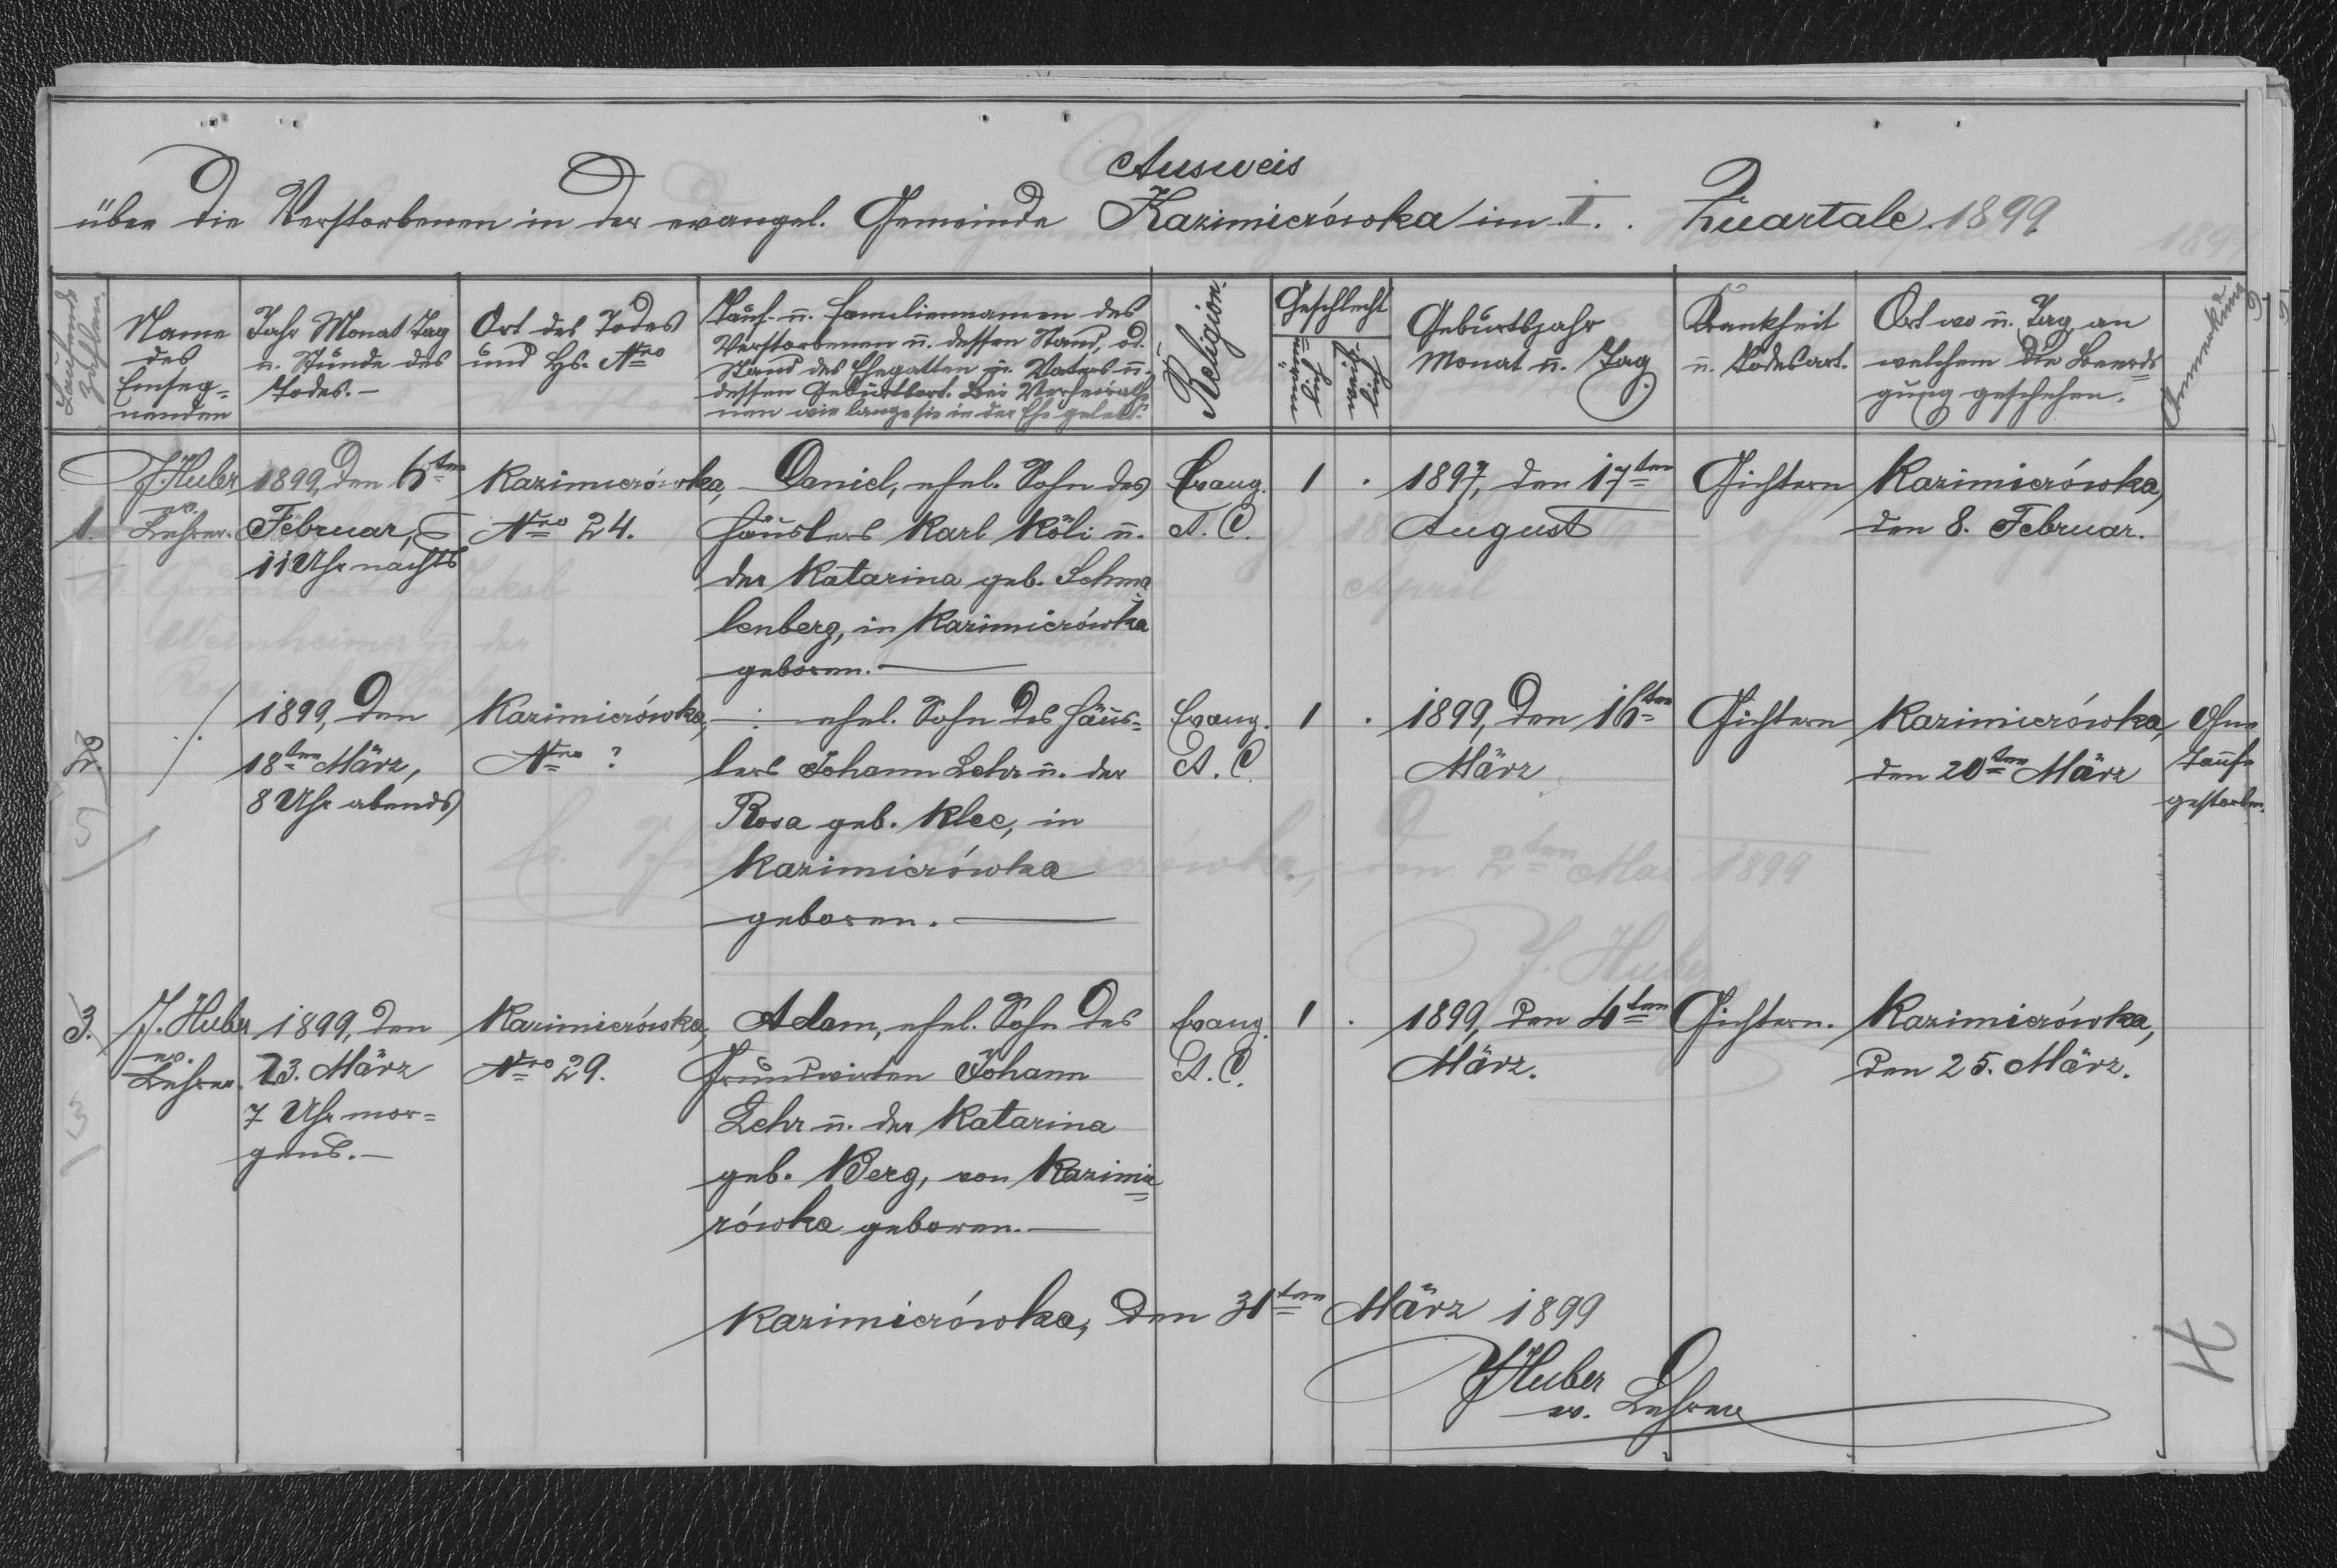 Ausweis
über die Verstorbenen in der evangel. Gemeinde Kazimierówka im I. Quartale 1899.
Laufende Zahlen.
Name
des
Einseg=
nenden
Jahr Monat Tag
u. Stunde des
Todes.–
Ort des Todes
und Hs. Nro
Tauf- u. Familiennamen des
Verstorbenen u. dessen Stand, od.
Stand des Ehegatten u. Vaters u.
dessen Geburtsort. Bei Verheirathe=
nen wie lange sie in der Ehe gelebt.
Religion.
Geschlecht
männlich
weiblich
Geburtsjahr
Monat u. Tag
Krankheit
u. Todesart.
Ort wo u. Tag an
welchem die Beerdi=
gung geschehen.
Anmerkung
1.
J. Huber
ev.
Lehrer.
1899, den 6ten
Februar,
11 Uhr nachts
Kazimierówka,
Nro 24.
Daniel, ehel. Sohn des
Häuslers Karl Köli u.
der Katarina geb. Schma=
lenberg, in Kazimierówka
geboren.—
Evang.
A. C.
1 .
1897, den 17ten
August
Gichtern
Kazimierówka,
den 8. Februar.
2.
./.
1899, den
18ten März,
8 Uhr abends
Kazimierówka,
Nro ?
—: ehel. Sohn des Häus=
lers Johann Lehr u. der
Rosa geb. Klee, in
Kazimierówka
geboren. —
Evang.
A. C.
1 .
1899, den 16ten
März
Gichtern
Kazimierówka,
den 20ten März
Ohne
Taufe
gestorben.
3.
J. Huber
ev.
Lehrer.
1899, den
23. März
7 Uhr mor=
gens.—
Kazimierówka,
Nro 29.
Adam, ehel. Sohn des
Grundwirten Johann
Lehr u. der Katarina
geb. Berg, von Kazimie=
rówka geboren.—
Evang.
A. C.
1 .
1899, den 4ten
März.
Gichtern.
Kazimierówka,
den 25. März.
Kazimierówka, den 31ten März 1899
J Huber
ev. Lehrer